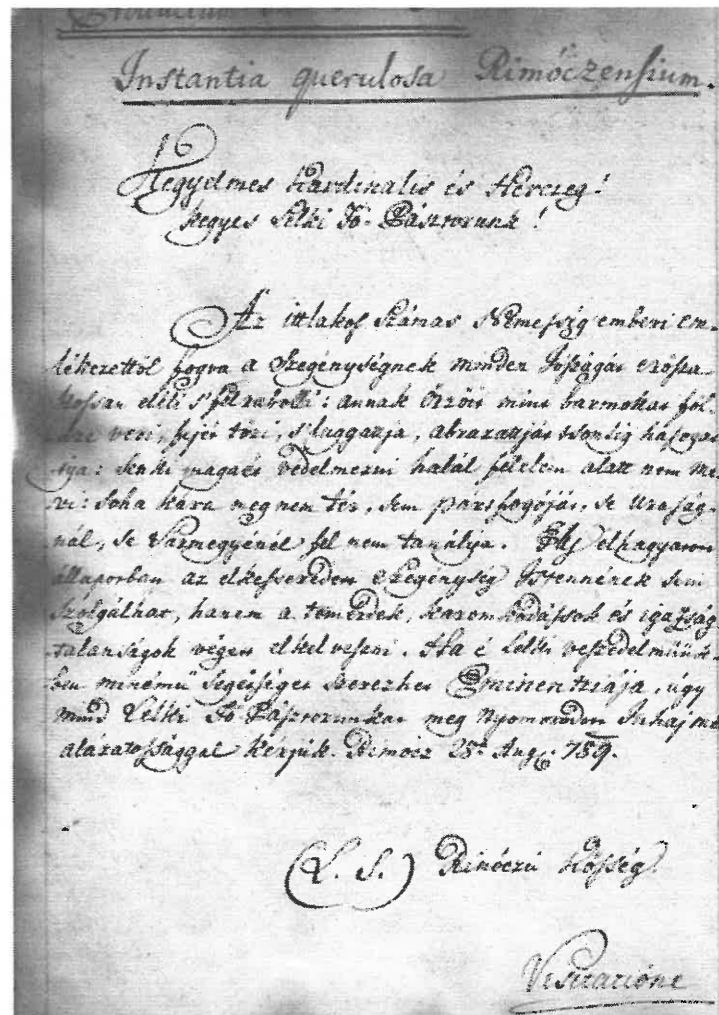 Instantia querulosa Rimóczensium.
Kegyelmes Kardinalis és Herczeg!
Kegyes Lelki Fő-Pásztorunk!
Az ittlakos Számas Nemesség emberi em-
lékezettől fogva a Szegénységnek minden Jószágát erősza-
kossan eléli s' felrabolli: annak Őrzőit mint barmokat föl-
veri, fejét töri, s' fuggattja, abrazattját
tya: Senki magáét védelmezni halál félelem alatt nem me-
ri: Soha kára meg nem tér, sem partfogóját, se Uraság-
nál, se Vármegyénél fel nem tanálya. Illy elhagyatott
állapotban az elkeseredett Szegénység Istennének sem
Szolgálhat, hanem a temérdek, káromkodássok és igasság-
talanságok végett el kel veszni. Ha é Lelki veszedelmünk-
ben minémű Segétséget szerezhet Eminentziája, úgy
mind Lelki Fő-Pásztorunkat meg nyomorodott Juhaj
alázatossággal kérjük. Rimócz 25a Aug. 789.
(L. S.) Rimóczi Kösség
Visitatióne